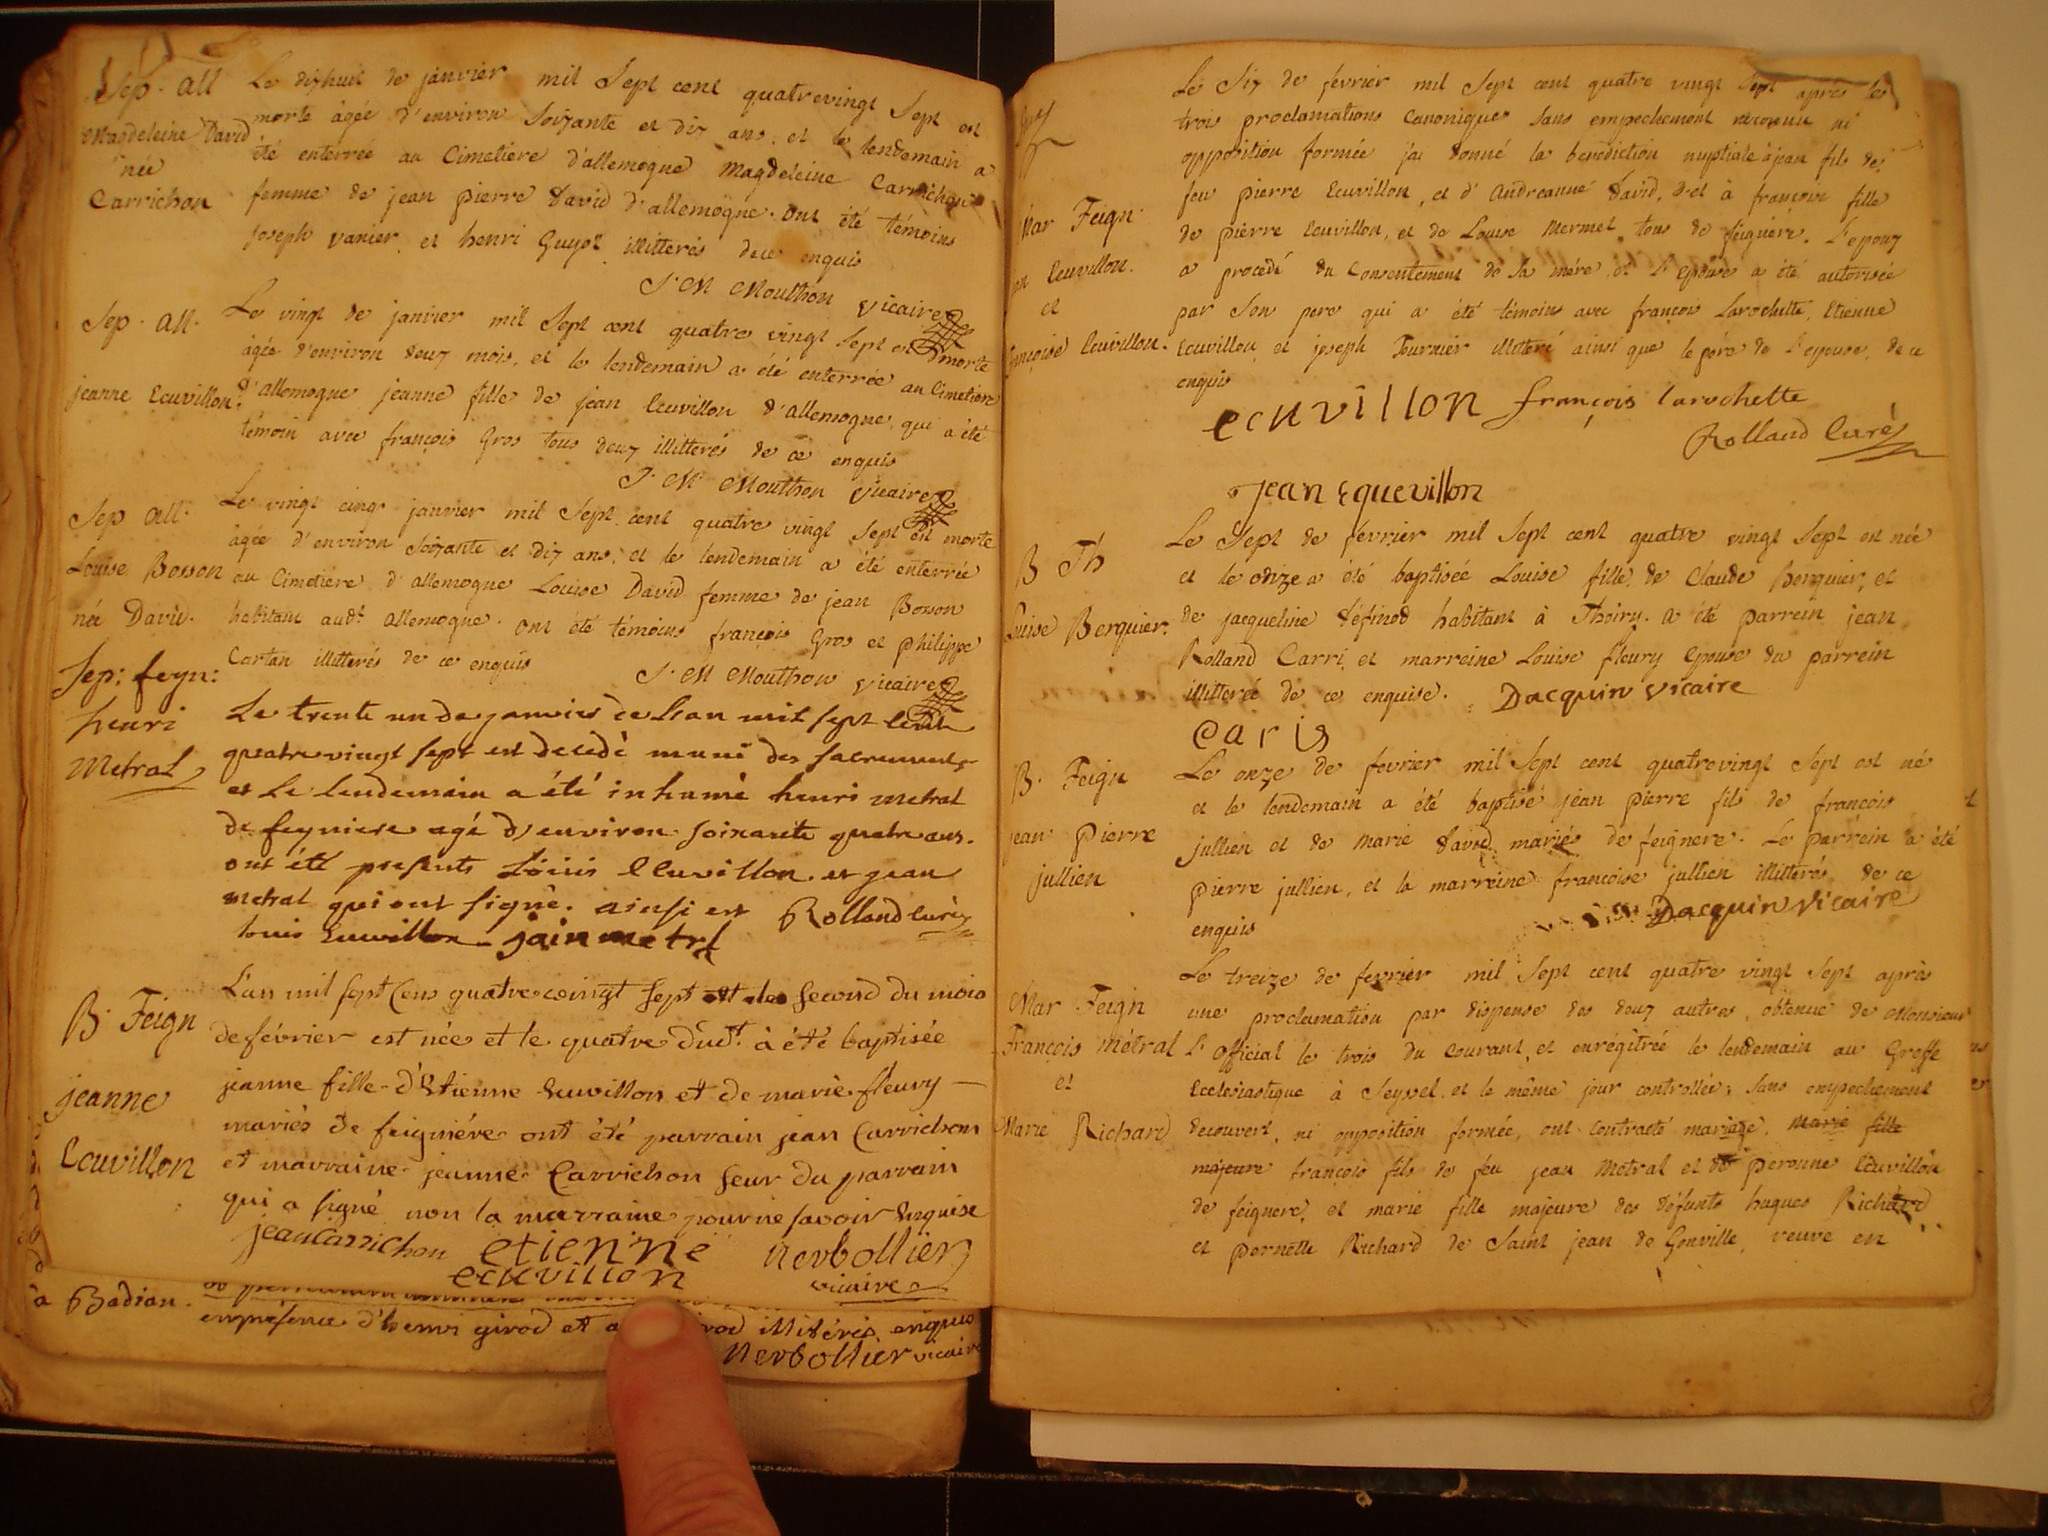 Sep. all
Magdeleine David
née
Carrichon
Le dixhuit de janvier mil sept cent quatrevingt sept est
morte àgée d'environ soixante et dix ans, et le lendemain a
été enterrée au Cimetiere d'allemogne Magdeleine Carrichon
femme de jean pierre David d'allemogne. ont été témoins
joseph vanier et henri Guyot illitterés de ce enquis
J. M Mouthon vicaire
Sep. all.
jeanne Ecuvillon.
Le vingt de janvier mil sept cent quatre vingt sept est morte
àgée d'environ deux mois, et le lendemain a été enterrée au Cimetiere
d'allemogne jeanne fille de jean Ecuvillon d'allemogne, qui a été
témoin avec françois Gros tous deux illitterés de ce enquis
J. M. Mouthon vicaire
Sep all.
Louise Bosson
née David.
Le vingt cinq janvier mil sept cent quatre vingt sept est morte
àgée d'environ soixante et dix ans, et le lendemain a été enterrée
au Cimetiere d'allemogne Louise David femme de jean Bosson
habitant audt allemogne. ont été témoins françois Gros et philippe
Cartan illitterés de ce enquis
J. M Mouthon vicaire
Sep: feyn:
henri
Metral
Le trente un de janvier de L'an mil sept cent
quatre vingt sept est decedé muni des sacrements
et Le lendemain a été inhumé henri metral
de feyniere agé d'environ soixante quatre ans.
ont été presents Louis Ecuvillon et jean
metral qui ont signé. ainsi est Rolland curé
louis Ecuvillon jain metrl
B. Feign
jeanne
Ecuvillon
L'an mil sept Cens quatre vingt sept et les second du mois
de février est née et le quatre dudt. à été baptisée
jeanne fille d'Etienne Ecuvillon et de marie fleury
mariés de feigniére ont été parrain jean Carrichon
et marraine jeanne Carrichon seur du parrain
qui a signé non la marraine pour ne savoir Enquise
jean Carrichon etienne Nerbollier
ecuvillon vicaire
à Badian.
en présence d'henri girod et girod illitérés enquis
Nerbollier vicaire
Le six de fevrier mil sept cent quatre vingt sept après les
trois proclamations canoniques sans empechement reconnu ni
opposition formée j'ai donné la benediction nuptiale à jean fils de
feu pierre Ecuvillon, et d'Andreanne David, et à françoise fille
de pierre Ecuvillon, et de Louise Mermet tous de feigniere. L'epoux
a procedé du consentement de sa mére, et l'epouse a été autorisée
par son pere qui a été témoins avec françois Larochette, Etienne
Ecuvillon et joseph Tournier illitteré ainsi que le pére de l'epouse, de ce
enquis
Mar Feign.
Ecuvillon.
et
françoise Ecuvillon.
ecuvillon françois larochette
Rolland Curé
jean Equevillon
B Th
Louise Berquier.
Le sept de février mil sept cent quatre vingt sept est née
et le onze a été baptisée Louise fille de Claude Berquier, et
de jacqueline définod habitant à Thoiry. a été parrein jean
Rolland Carri, et marreine Louise fleury epouse du parrein
illitterée de ce enquise. Dacquin vicaire
caris
B. Feign
jean pierre
jullien
Le onze de fevrier mil sept cent quatrevingt sept est né
et le lendemain a été baptisé jean pierre fils de françois
jullien et de marie David mariés de feignere. Le parrein a été
pierre jullien, et la marreine françoise jullien illitterés de ce
enquis
Dacquin vicaire
Mar. Feign
François métral
et
Marie Richard
Le treize de fevrier mil sept cent quatre vingt sept après
une proclamation par dispense des deux autres, obtenue de Monsieur
L'official le trois du courant, et enrégitrée le lendemain au Greffe
Ecclesiastique à Seyssel, et le même jour controllée; sans empechement
decouvert, ni opposition formée, ont contracté mariage, marie fille
majeure françois fils de feu jean Metral et de peronne Ecuvillon
de feignere, et marie fille majeure des défunts hugues Richard
et pernette Richard de Saint jean de Gonville, veuve en